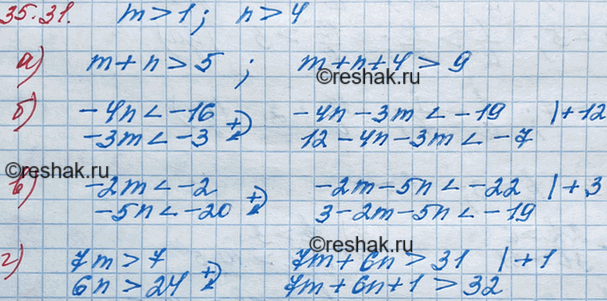 35.31. m>1; n>4
а) m+n>5; m+n+4>9
©reshak.ru
б) -4n<-16 -4n-3m<-19 |+12
-3m<-3 +) 12-4n-3m<-7
©reshak.ru
в) -2m<-2 -2m-5n<-22 |+3
-5n<-20 +) 3-2m-5n<-19
©reshak.ru
г) 7m>7 7m+6n>31 |+1
6n>24 +) 7m+6n+1>32